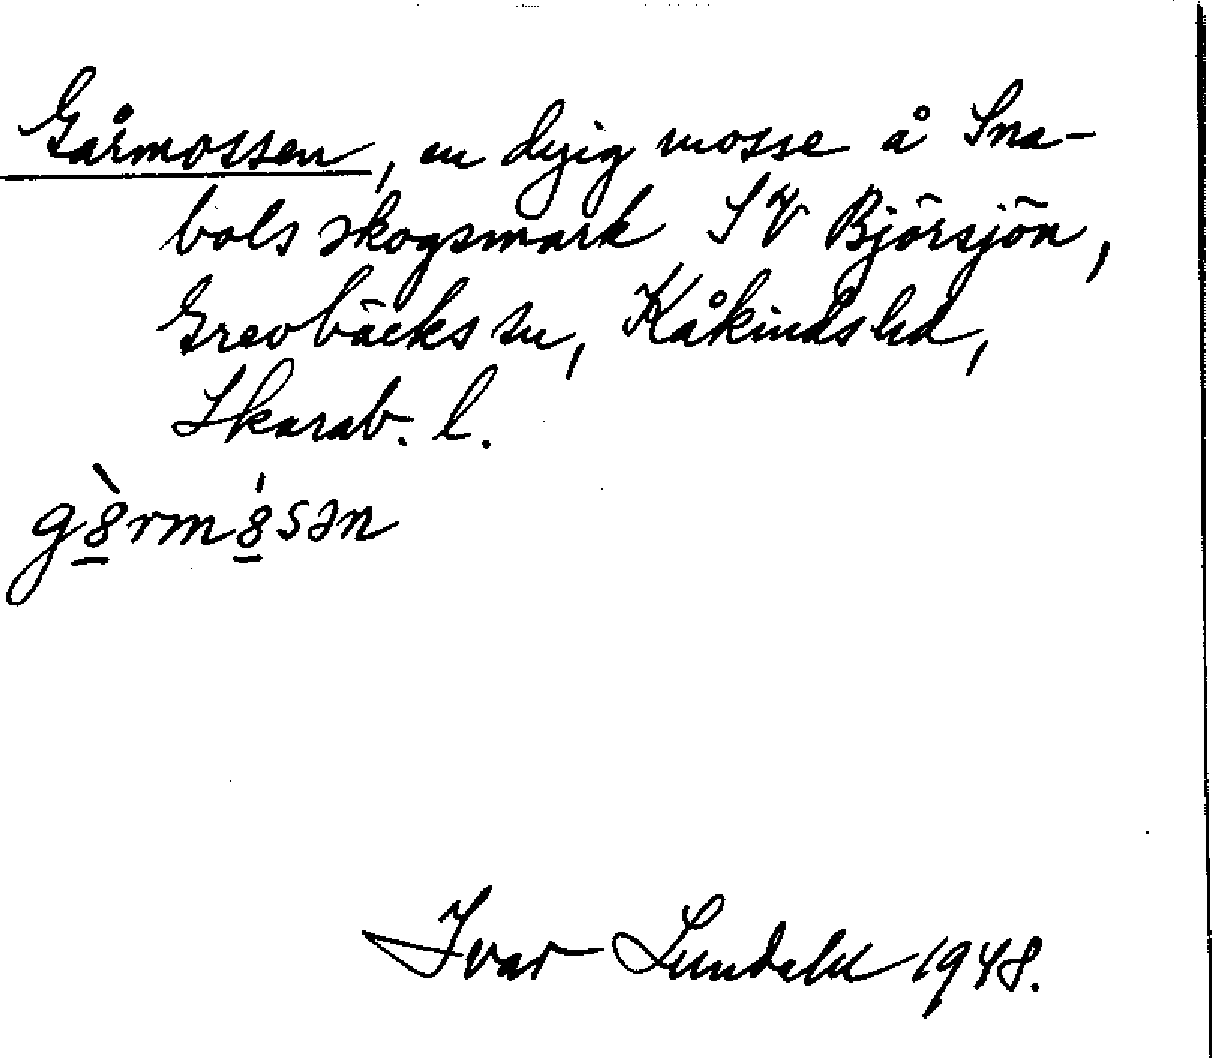 Gårmossen, en dyig mosse å Sna-
bols skogsmark SV Björsjön,
Grevbäcks sn, Kåkinds hd,
Skarab. l.
gàrmósən
Ivar Lundahl 1948.